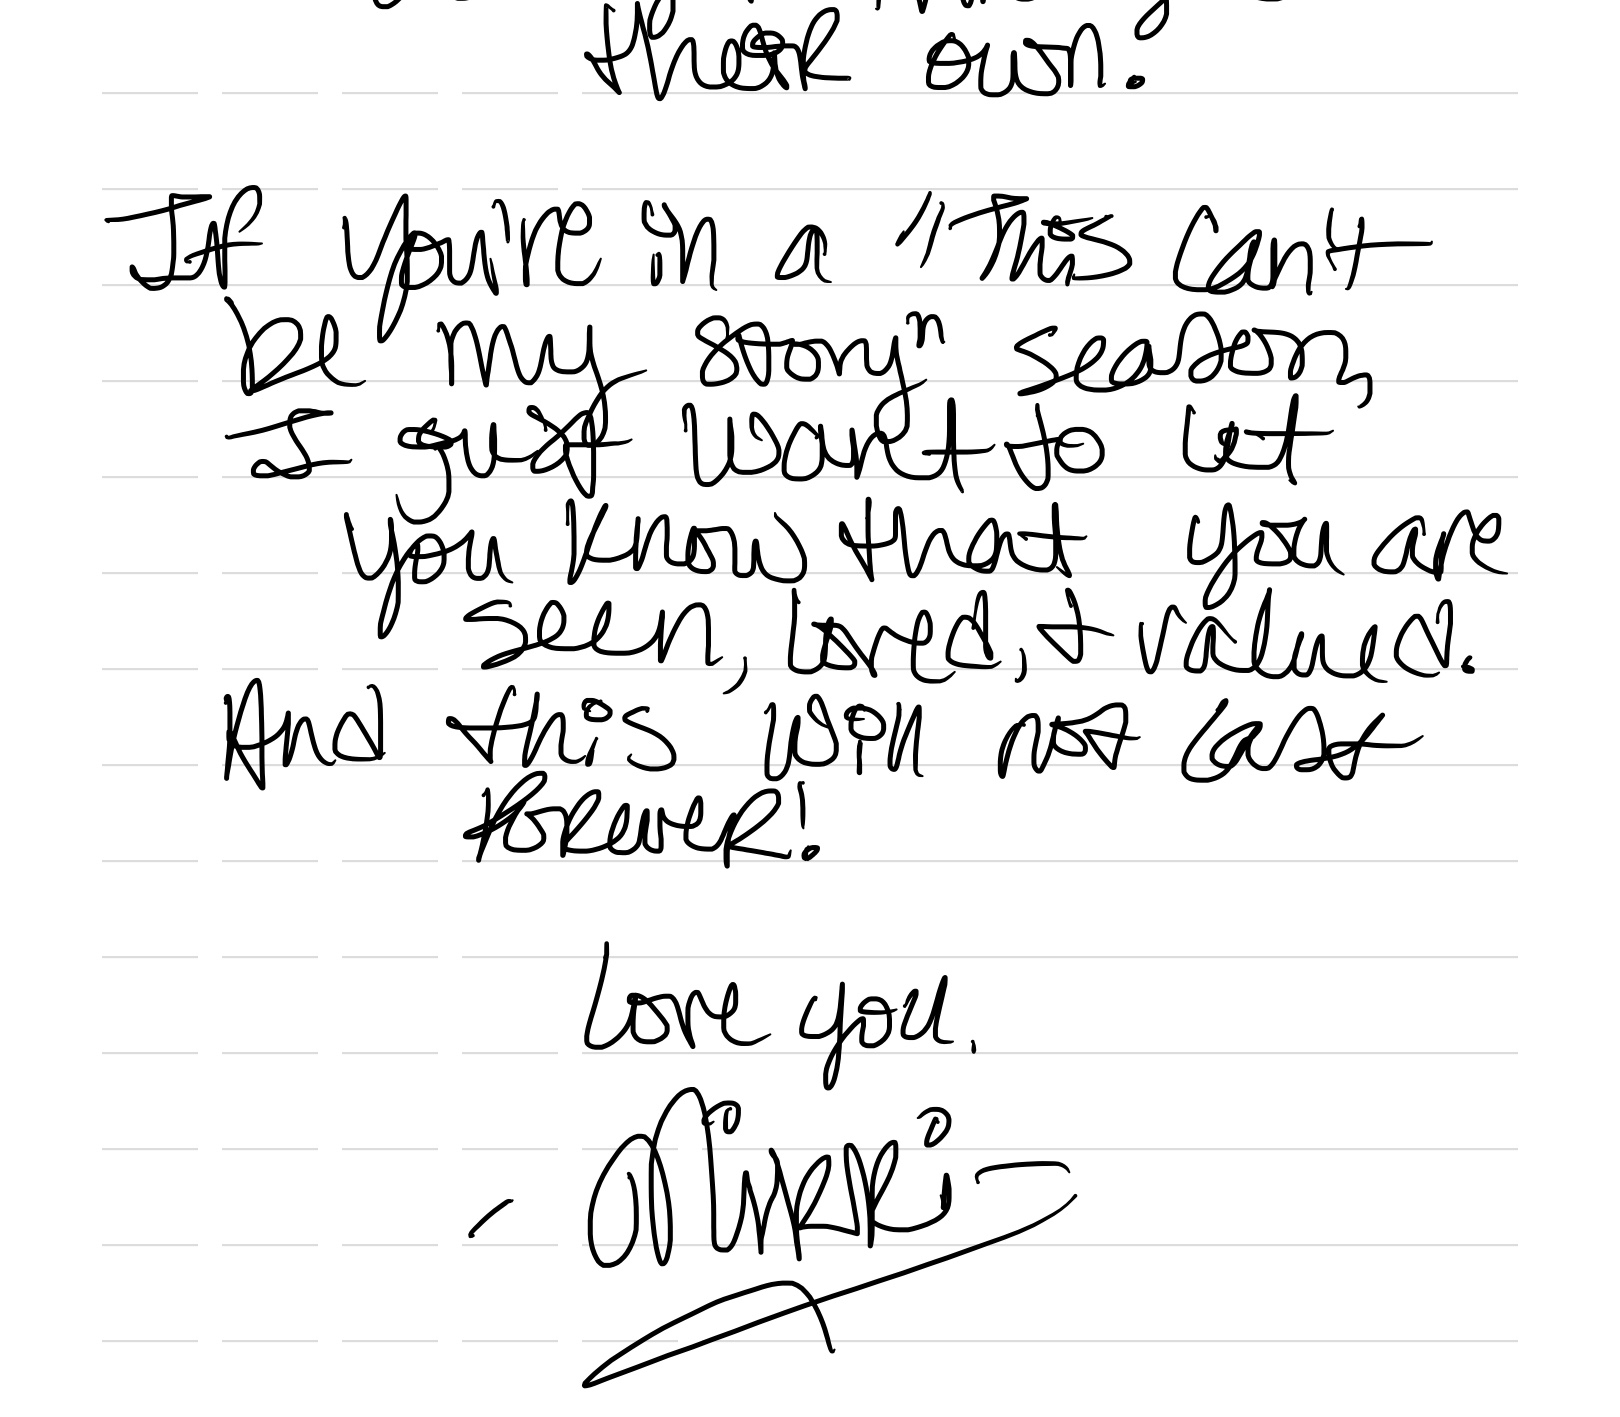 their own.
If you're in a "This can't
be my story" season,
I just want to let
you know that you are
seen, loved, + valued.
And this will not last
forever!
Love you,
- Nikki -